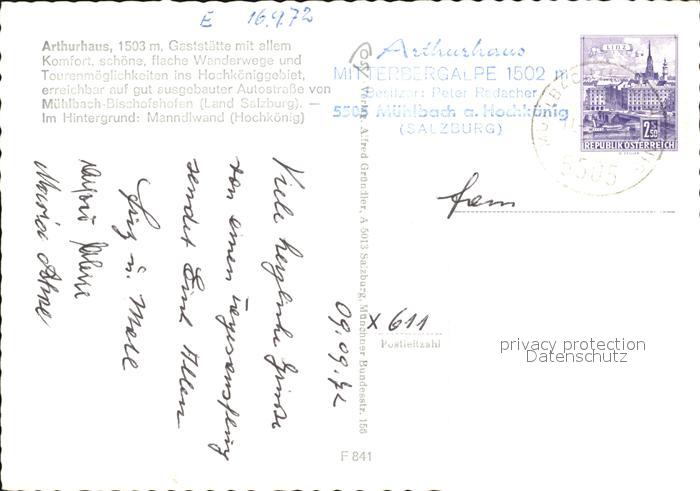 E 16.9.72
Arthurhaus, 1503 m, Gaststätte mit allem
Komfort, schöne, flache Wanderwege und
Tourenmöglichkeiten ins Hochköniggebiet,
erreichbar auf gut ausgebauter Autostraße von
Mühlbach-Bischofshofen (Land Salzburg). —
Im Hintergrund: Manndlwand (Hochkönig)
Arthurhaus
MITTERBERGALPE 1502 m
Besitzer: Peter Radacher
5505 Mühlbach a. Hochkönig
(SALZBURG)
LINZ
2.50
REPUBLIK ÖSTERREICH
5505
Verlag Alfred Gründler, A 5013 Salzburg, Münchner Bundesstr. 156
Fam
Viele herzliche Grüsse
von einen Tagesausflug
sendet Euch Allen
u.
Maria
09.09.72
X 611
Postleitzahl
F 841
privacy protection
Datenschutz